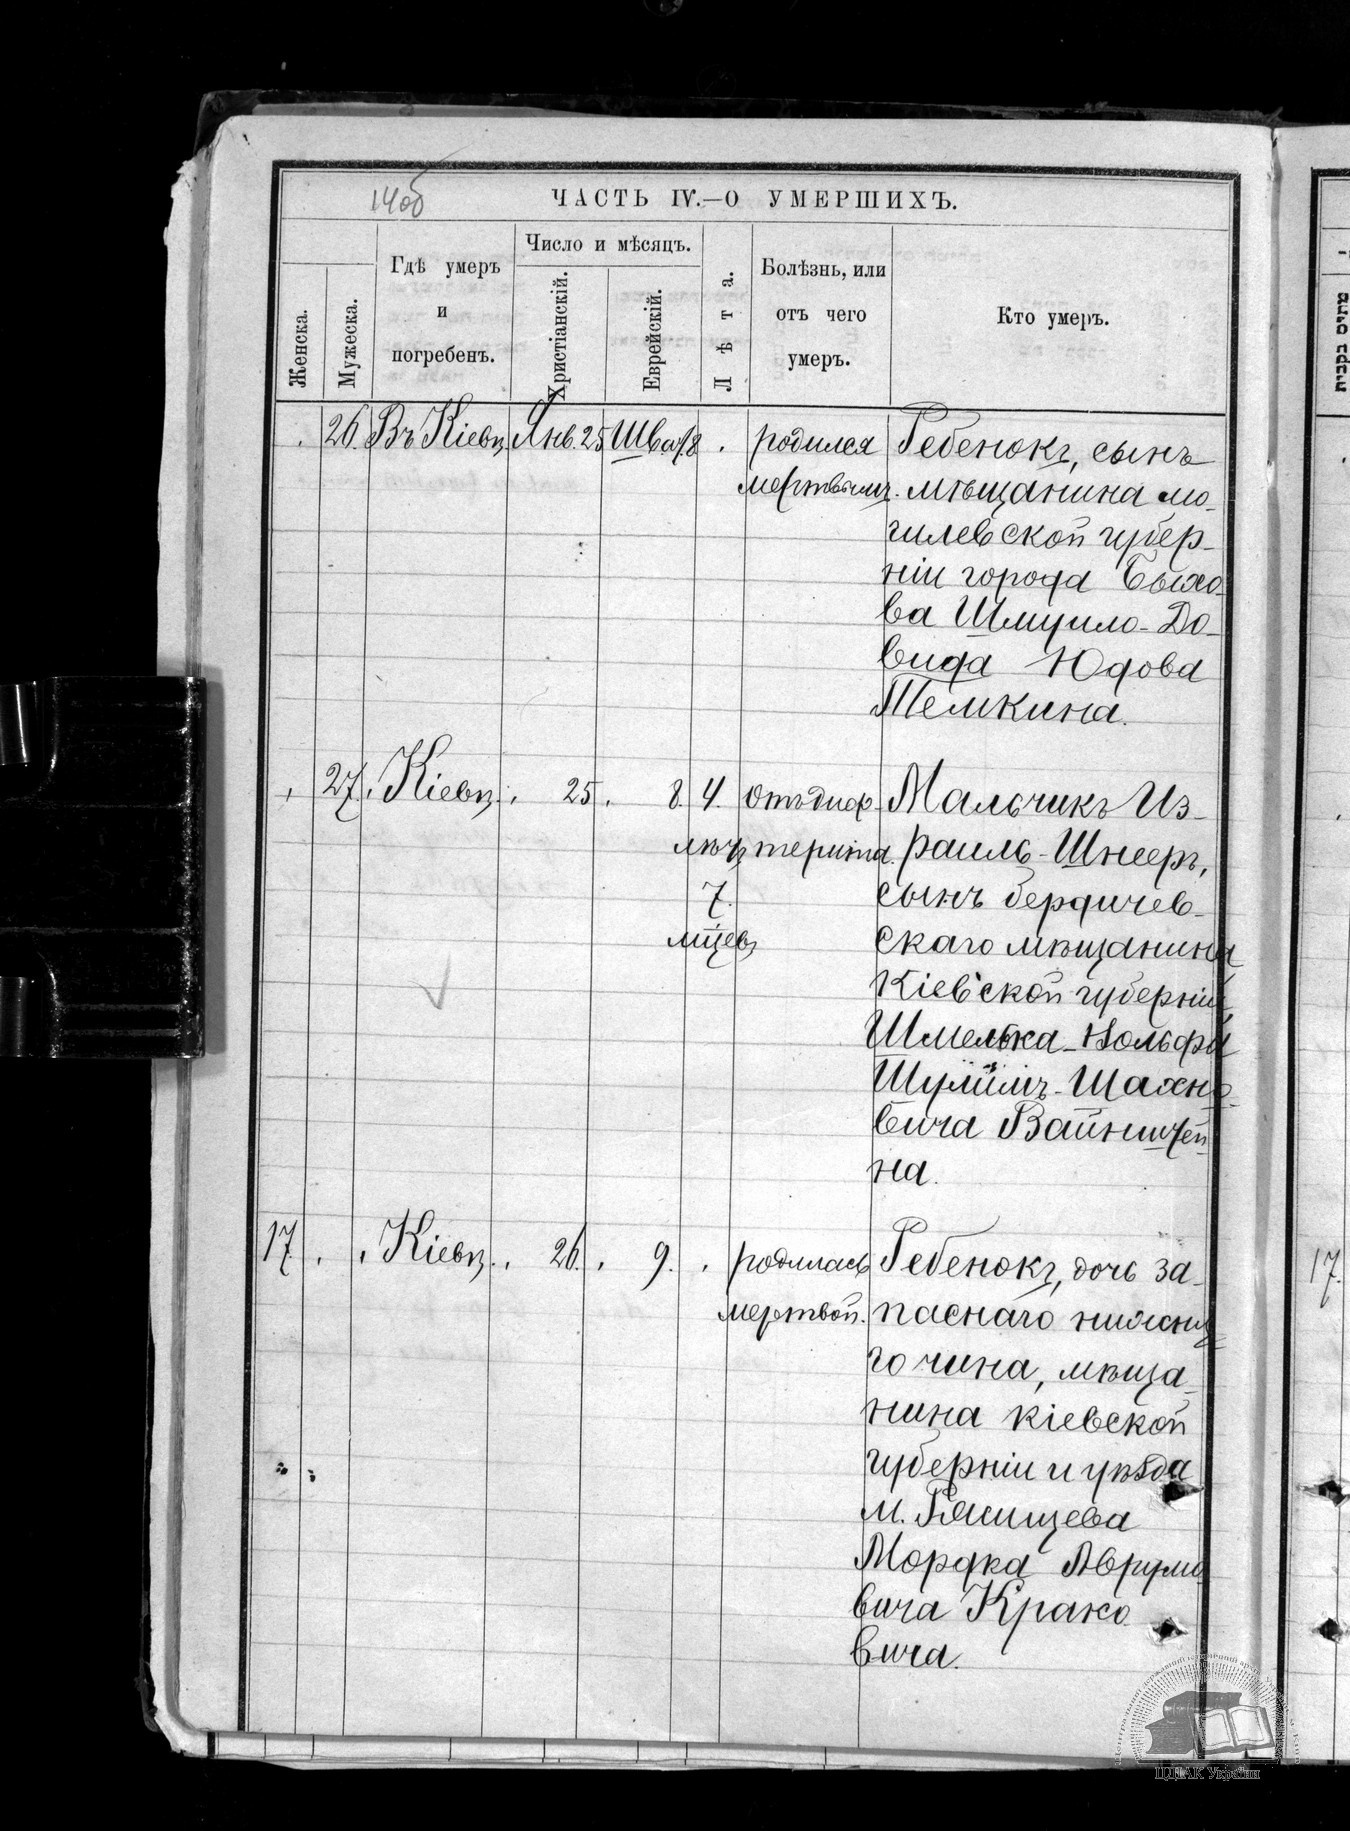 14об
ЧАСТЬ IV.—О УМЕРШИХЪ.
Женска.
Мужеска.
Гдѣ умеръ
и
погребенъ.
Число и мѣсяцъ.
Христіанскій.
Еврейскій.
Лѣта.
Болѣзнь, или
отъ чего
умеръ.
Кто умеръ.
26. Въ Кіевѣ Янв. 25 Шват 8 родился Ребенокъ, сынъ
мертвымъ. мѣщанина мо-
гилевской губер-
ніи города Быхо-
ва Шмуило-До-
вида Юдова
Темкина.
27. Кіевѣ. 25. 8. 4. отъ диф- Мальчикъ Из-
лѣтъ терита. раиль-Шнееръ,
7. сынъ бердичев-
мцев скаго мѣщанина
Кіевской губерніи,
Шмелька-Вольфа
Шулимъ-Шахно-
вича Вайнштей-
на.
17. Кіевѣ. 26. 9. родилась Ребенокъ, дочь за-
мертвой. паснаго нижня-
го чина, мѣща-
нина кіевской
губерніи и уѣзда
м. Ржищева
Мордка Аврумо-
вича Крако-
вича.
17.
ЦДІАК України